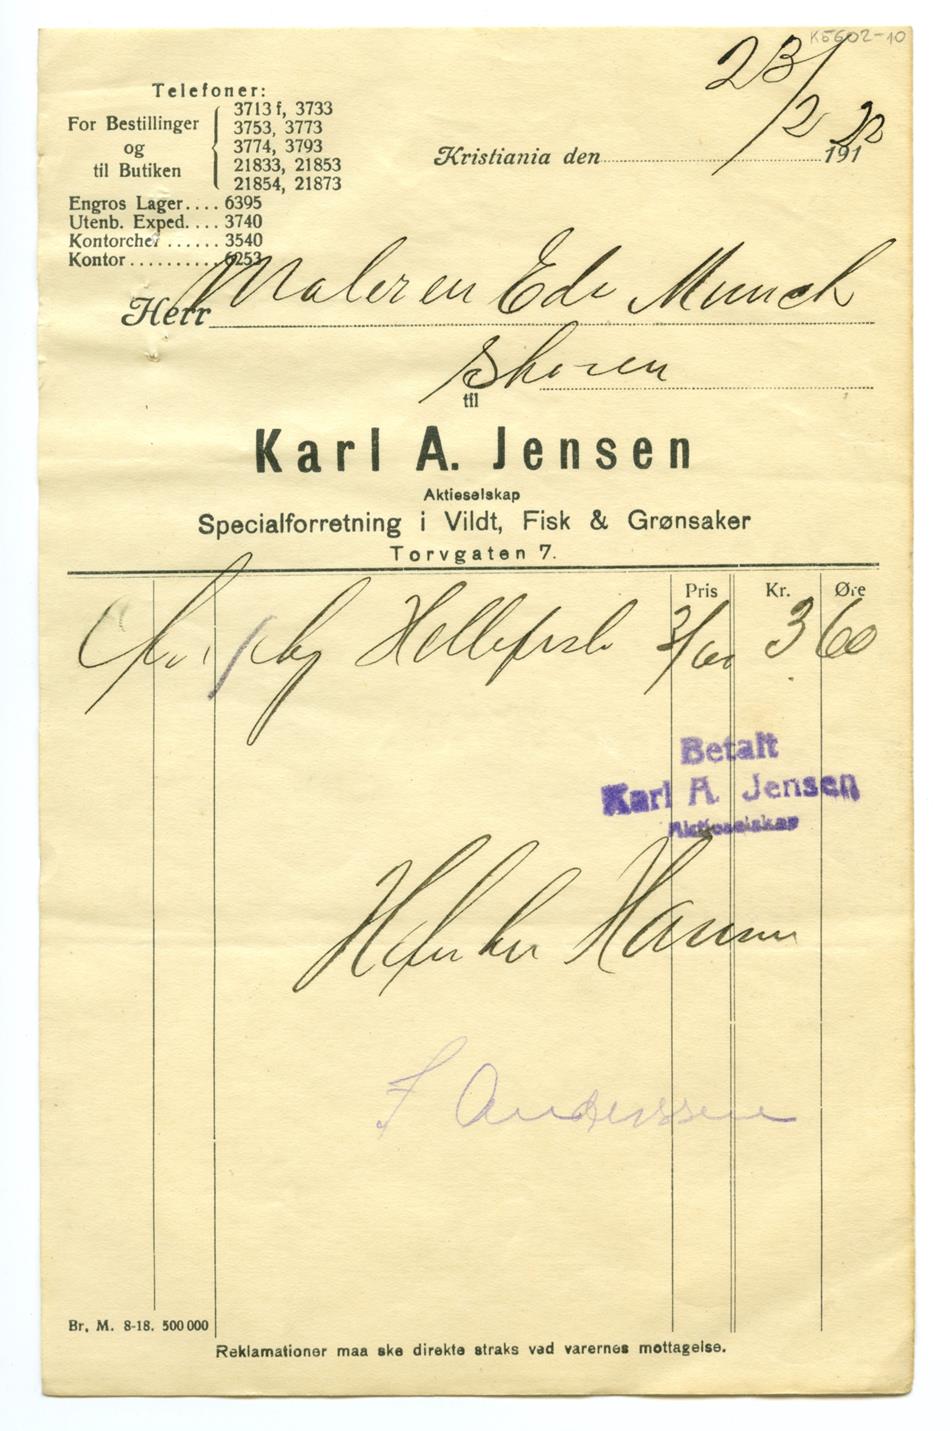 K5602-10
Telefoner:
For Bestillinger og til Butiken
3713 f, 3733
3753, 3773
3774, 3793
21833, 21853
21854, 21873
Engros Lager.... 6395
Utenb. Exped.... 3740
Kontorchef ...... 3540
Kontor.......... 6253
23/2 22
Kristiania den 191
Herr Maleren Edv Munch
Skøien
til
Karl A. Jensen
Aktieselskap
Specialforretning i Vildt, Fisk & Grønsaker
Torvgaten 7.
Pris Kr. Øre
kg Helleflsk 3/60 3 60
Betalt
Karl A. Jensen
Aktieselskap
Hansen
F Anderssen
Br. M. 8-18. 500 000
Reklamationer maa ske direkte straks ved varernes mottagelse.